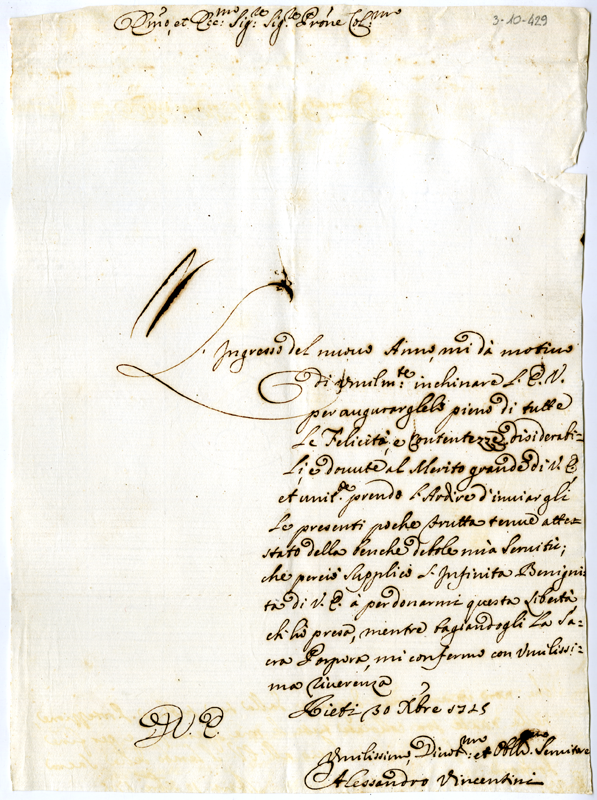 3-10-429
Emo, et Rmo Sig.re Sig.re Prōne Col.mo
L'Ingresso del nuovo Anno mi dà motivo
di Vmilm.te inchinare L'E.V.
per augurarglelo pieno di tutte
le Felicità, e Contentezze disiderabi-
li, e douute al Merito grande di V.E.
et unit.te prendo l'Ardire d'inuiar gli
le presenti poche frutta tenue atte-
stato della benche debole mia Seruitù;
che perciò supplico l'Infinita Benigni-
tà di V.E. à perdonarmi questa libertà
ch'hò presa, mentre bagiandogli la Sa-
cra Porpora, mi confermo con Vmilissi-
ma riuerenza
Rieti 30 Xbre 1725
D.V.E.
Vmilissimo, Diuot.mo et Obb.mo Seruitore
Alessandro Vincentini